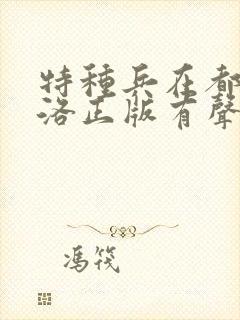 特種兵在都
洛正版有聲
馮筏